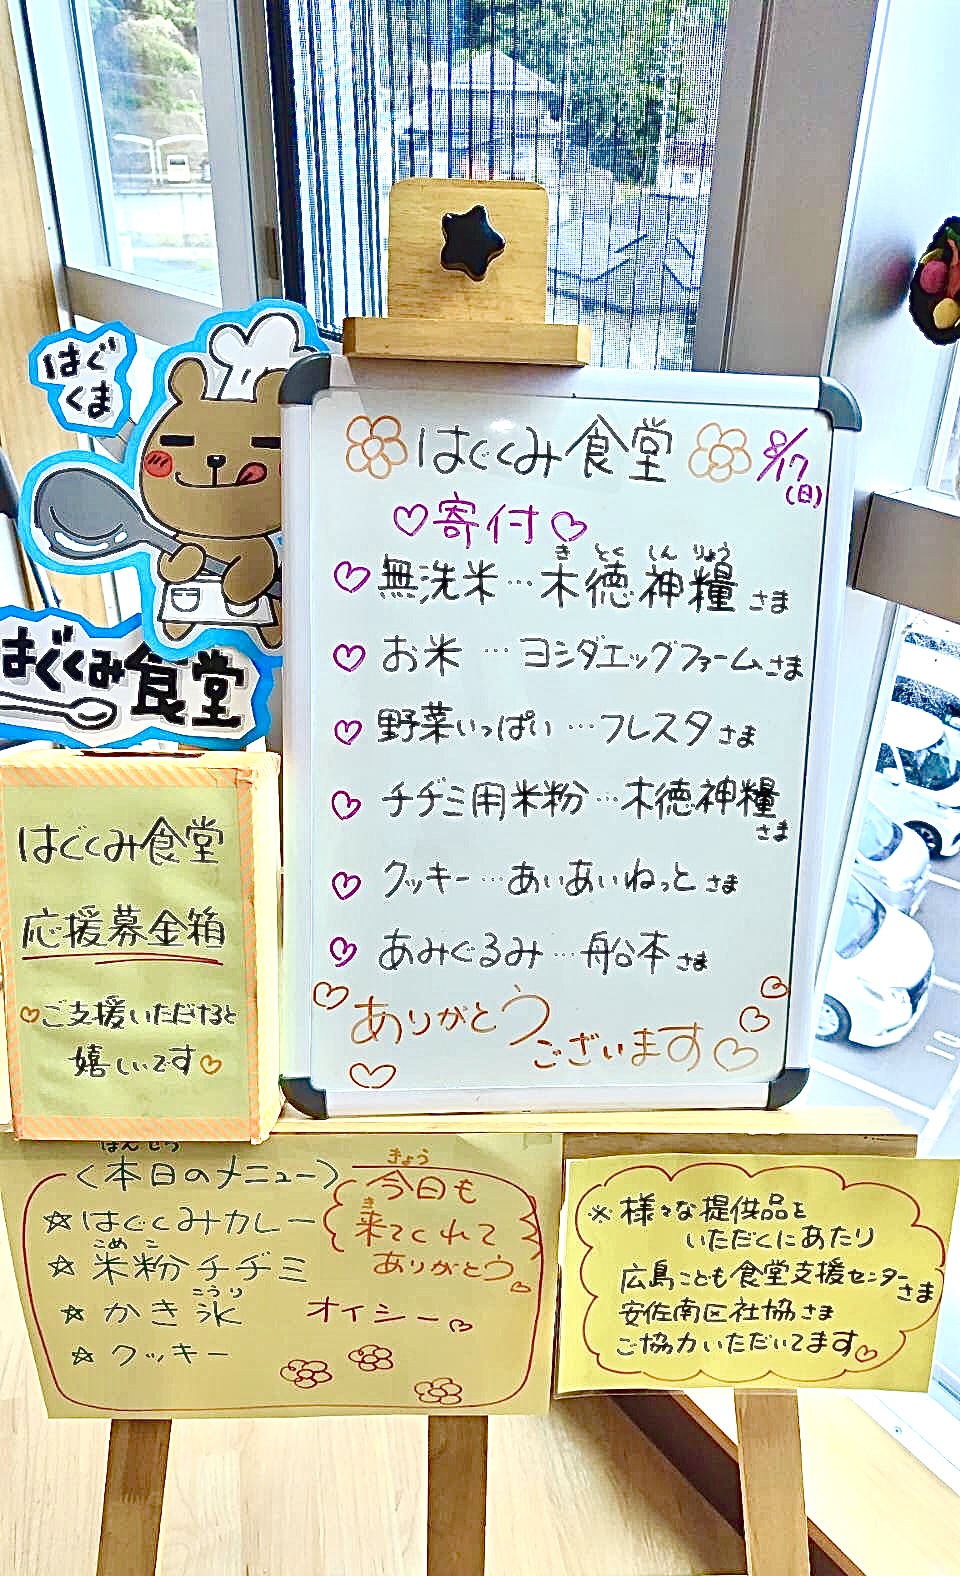 はぐ
くま
はぐくみ食堂
はぐくみ食堂
応援募金箱
♡ご支援いただけると
嬉しいです♡
はぐくみ食堂 8/17
(日)
♡寄付♡
き とく しん りょう
♡無洗米…木徳神糧さま
♡お米…ヨシダエッグファームさま
♡野菜いっぱい…フレスタさま
♡チヂミ用米粉…木徳神糧
さま
♡クッキー…あいあいねっとさま
♡あみぐるみ…船本さま
ありがとう
ございます
ほんじつ
〈本日のメニュー〉
☆はぐくみカレー
こめ こ
☆米粉チヂミ
こうり
☆かき氷
☆クッキー
きょう
今日も
き
来てくれて
ありがとう♡
オイシー♡
※様々な提供品を
いただくにあたり
広島こども食堂支援センターさま
安佐南区社協さま
ご協力いただいてます♡